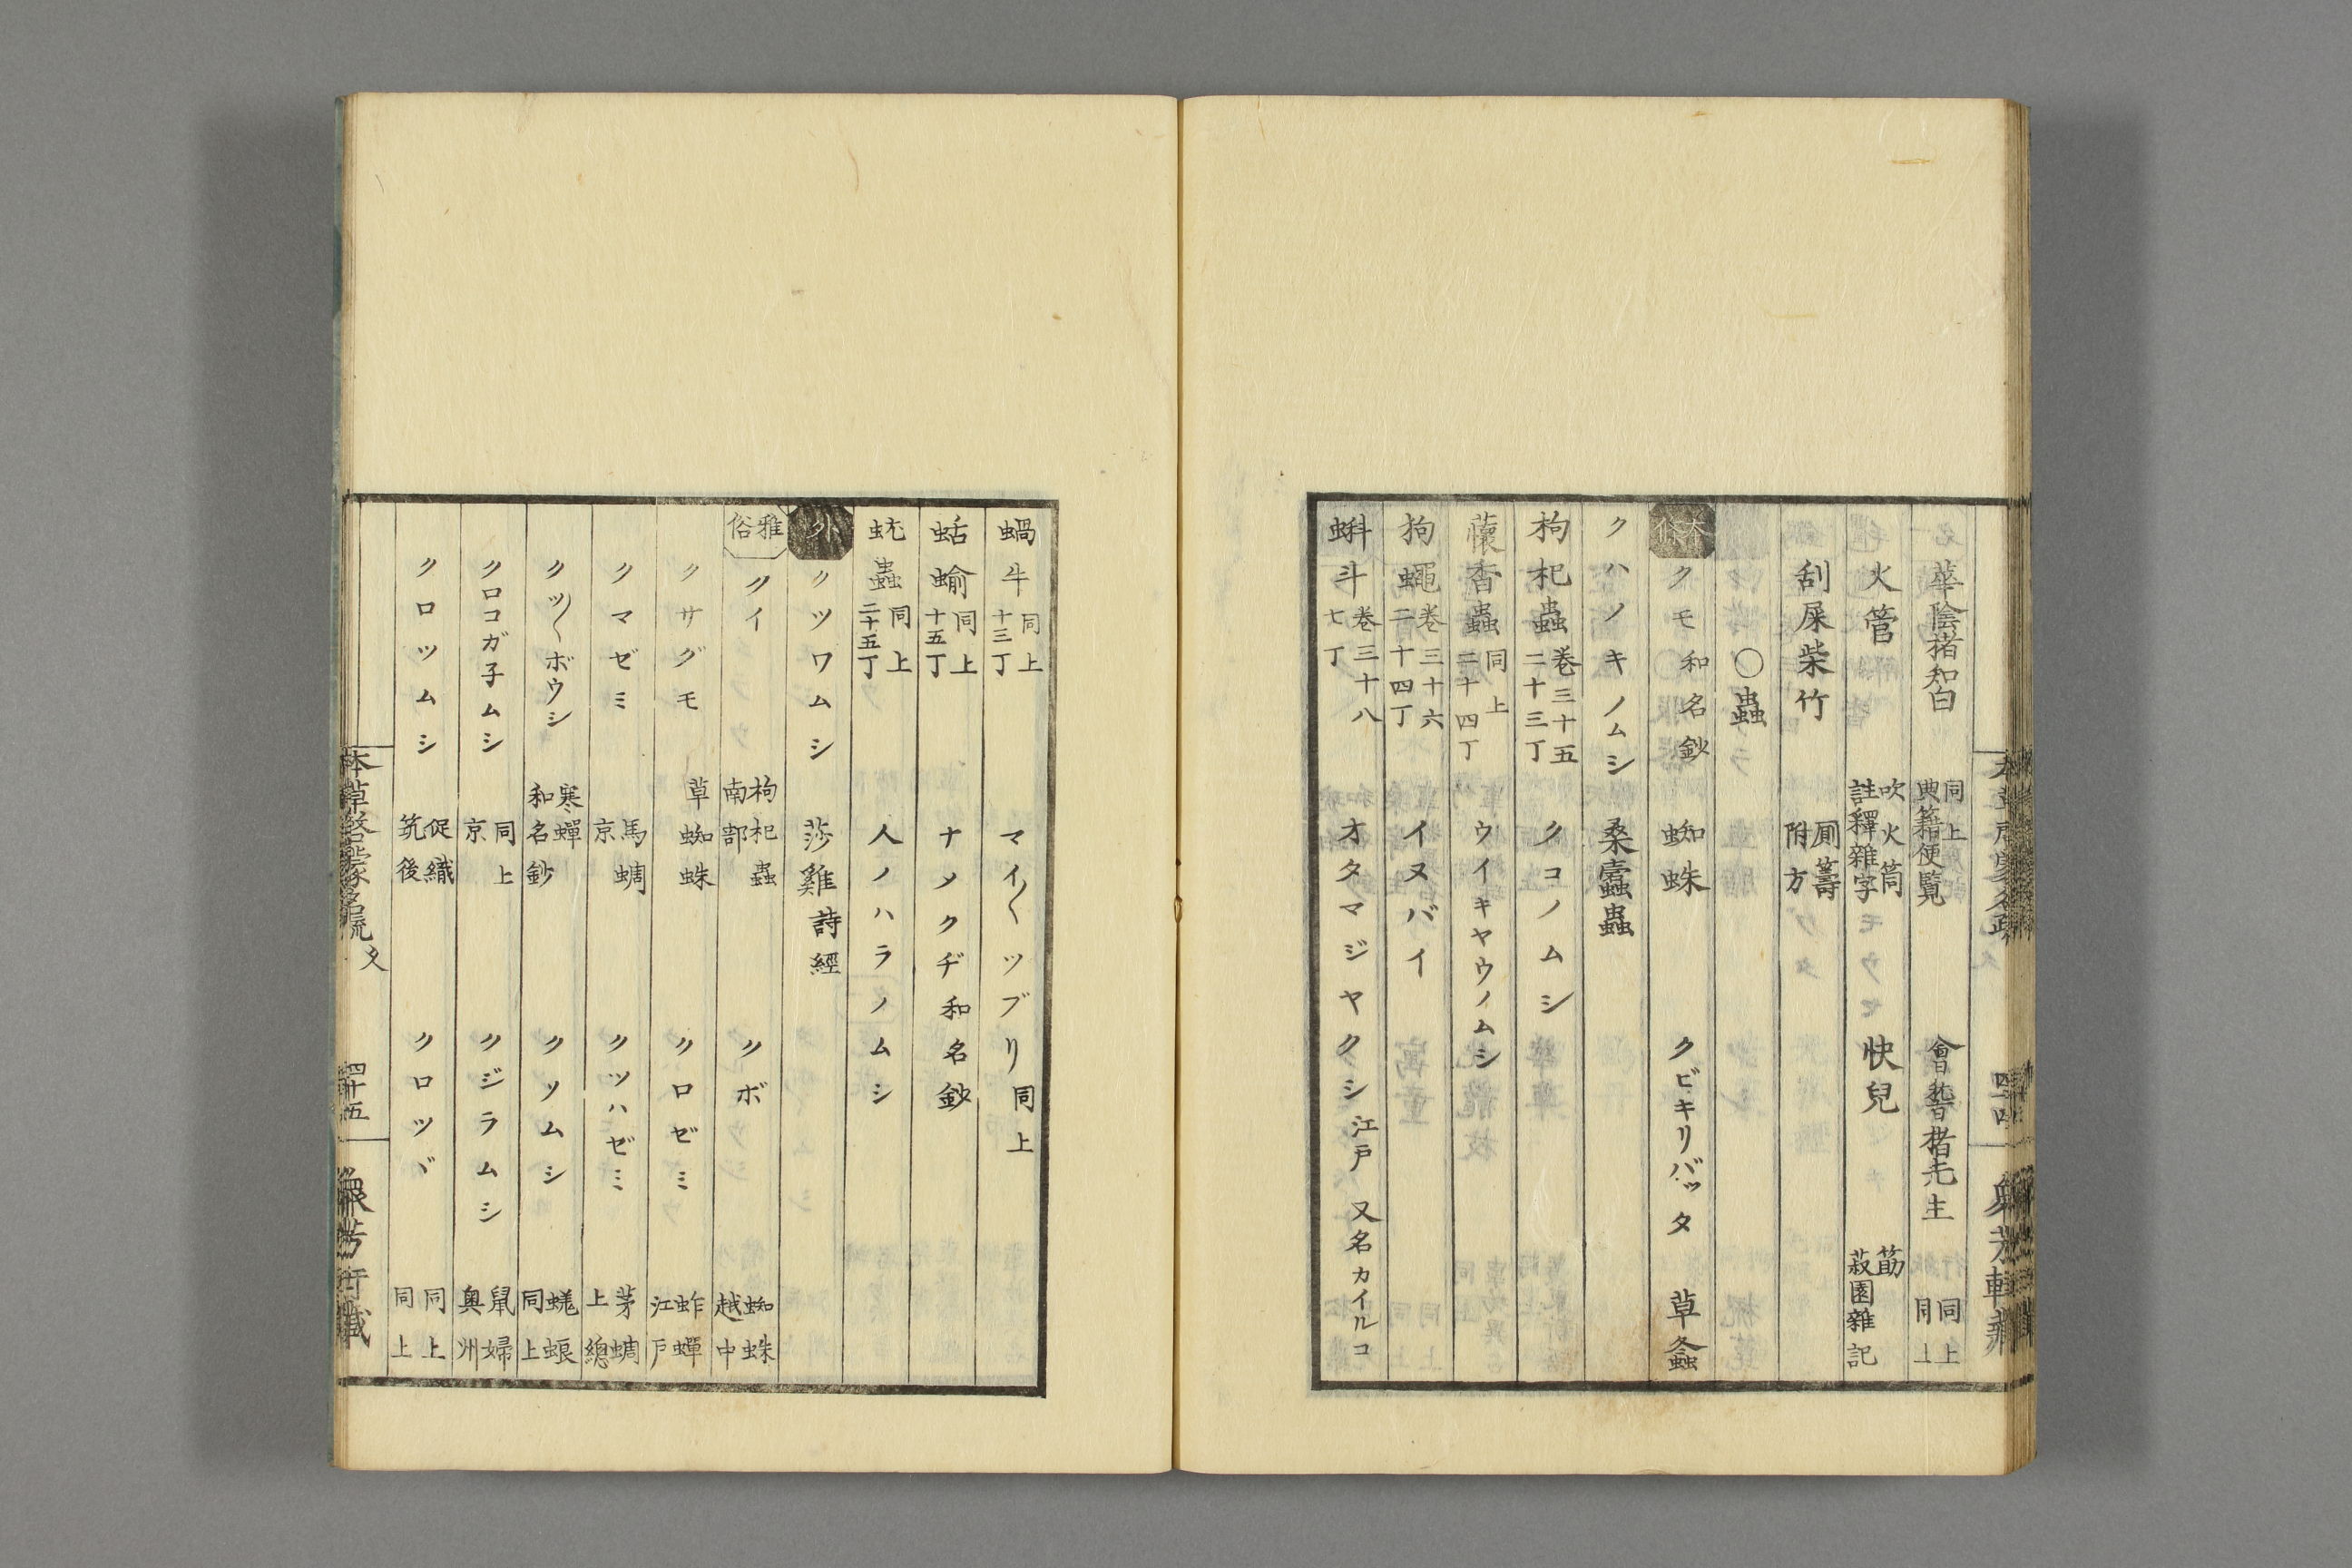 華陰楮知白 同上 典籍便覽 會稽楮先生 同上 同上
火管 吹火筒 註釋雜字 快兒 筯 菽園雜記
刮屎柴竹 厠籌 附方
〇蟲
クモ 和名鈔 蜘蛛 クビキリバッタ 草螽
クハノキノムシ 桑蠹蟲
枸杞蟲 卷三十五 二十三丁 クコノムシ
蘹香蟲 同上 二十四丁 ウイキヤウノムシ
狗蠅 卷三十六 二十四丁 イヌバイ
蝌斗 卷三十八 七丁 オタマジヤクシ 江戸 又名カイルコ
蝸牛 同上 十三丁 マイ〱ツブリ 同上
蛞蝓 同上 十五丁 ナメクヂ 和名鈔
蚘蟲 同上 二十五丁 人ノハラノムシ
外 クツワムシ 莎雞 詩經
雅俗 クイ 枸杞蟲 南部 クボ 蜘蛛 越中
クサグモ 草蜘蛛 クロゼミ 蚱蟬 江戸
クマゼミ 馬蜩 京 クツハゼミ 茅蜩 上總
クツ〱ボウシ 寒蟬 和名鈔 クソムシ 蜣蜋 同上
クロコガ子ムシ 同上 京 クジラムシ 鼠婦 奥州
クロツムシ 促織 筑後 クロツヾ 同上 同上
本草啓蒙名疏 四十五